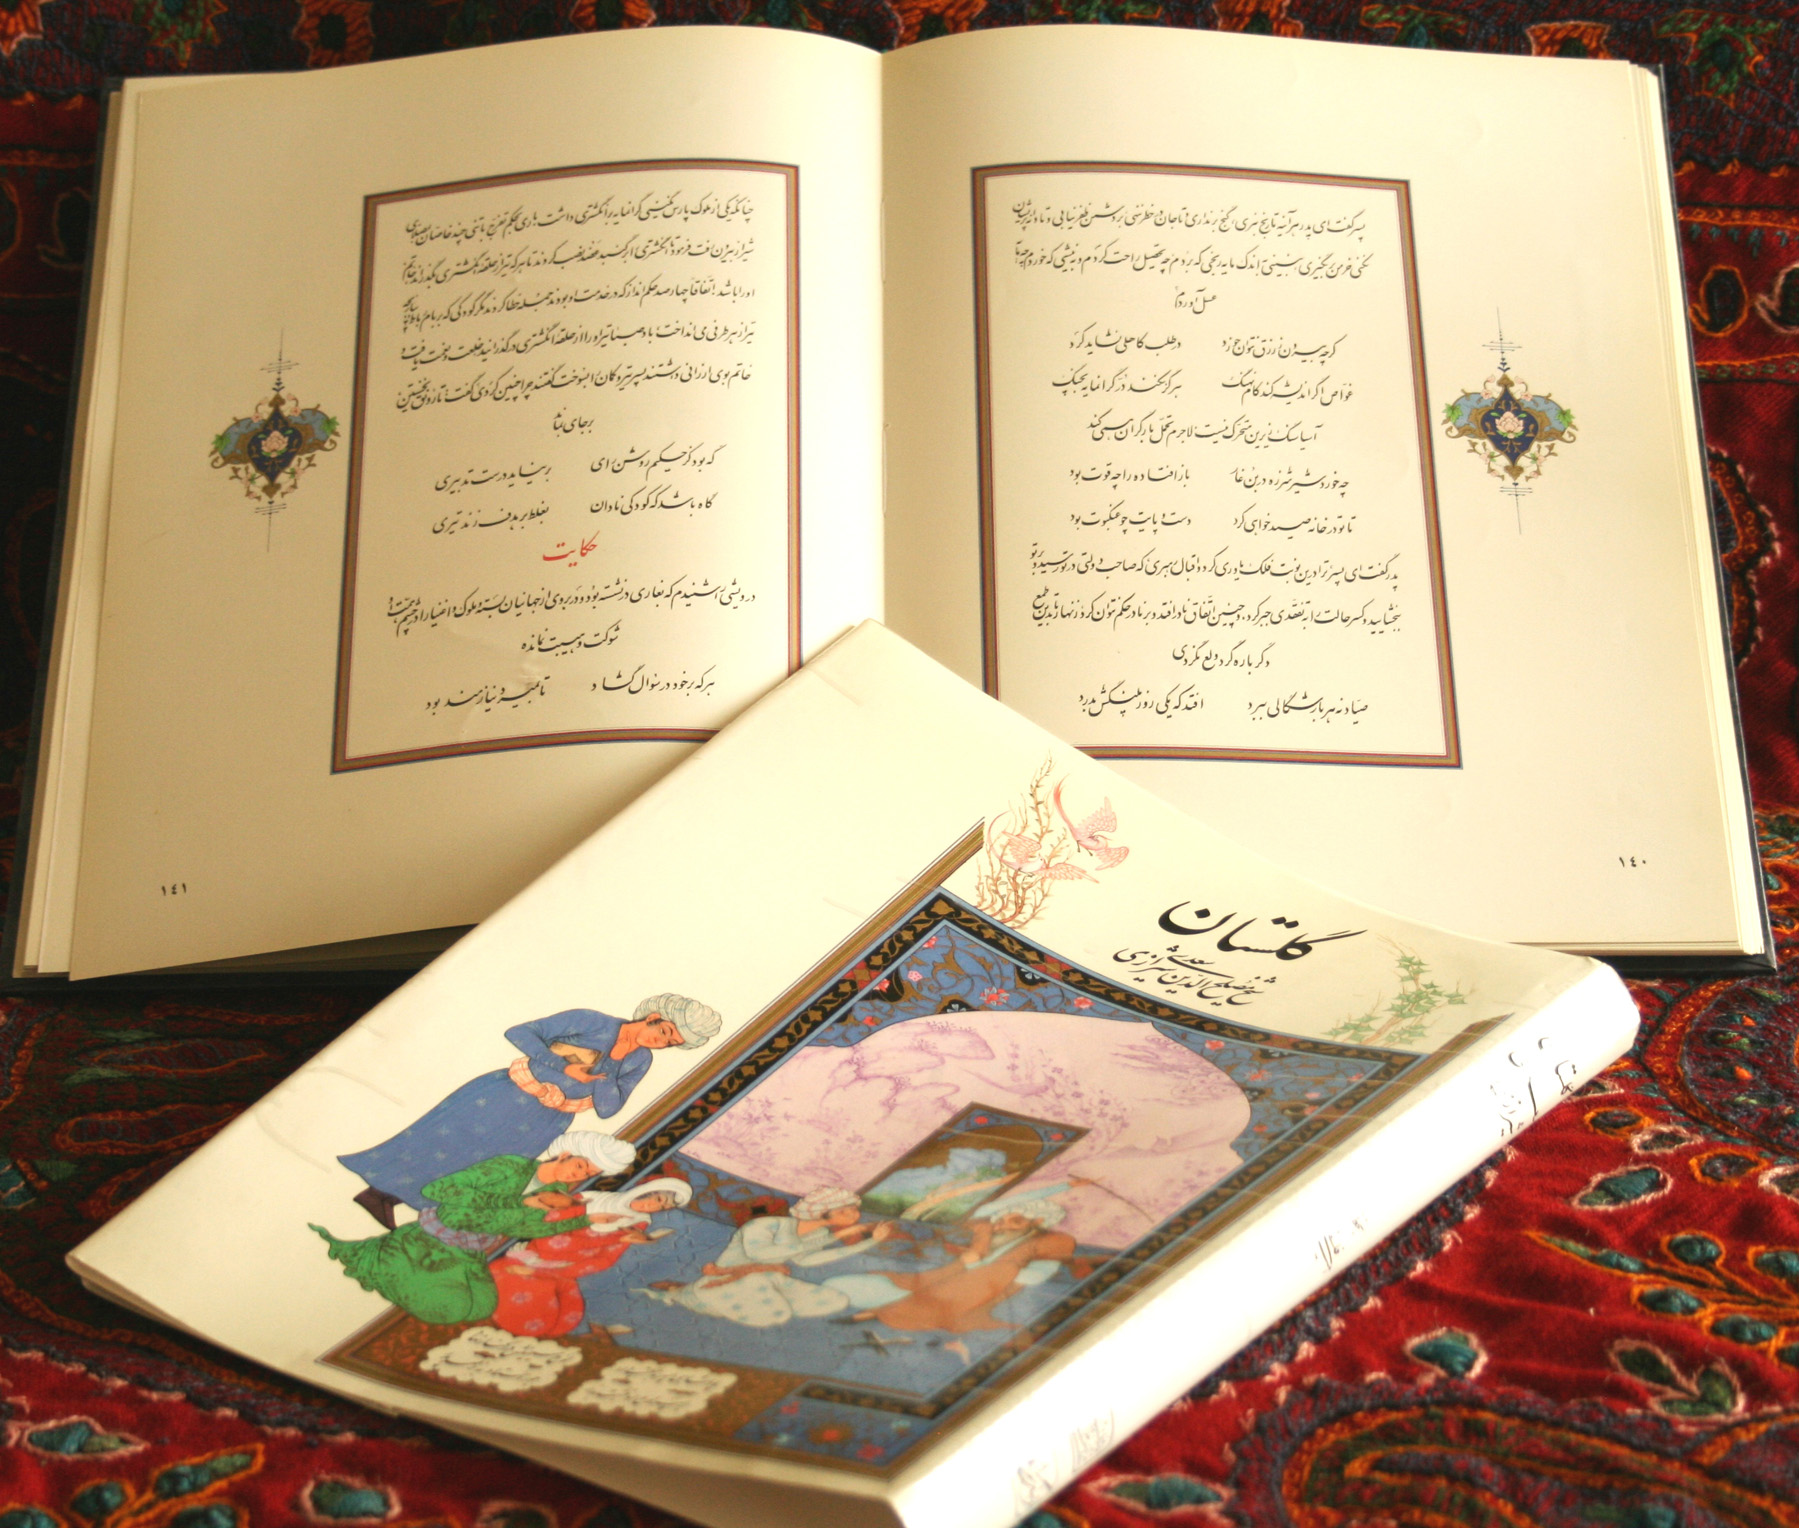 پسر گفت ای پدر هر آینه تا رنج نبری، گنج برنداری و تا جان در خطر ننهی بر دشمن ظفر نیابی و تا دانه پریشان
نکنی خرمن برنگیری نبینی به اندک مایه رنجی که بردم چه تحصیل راحت کردم و به نیشی که خوردم چه مایه
عسل آوردم
گرچه بیرون ز رزق نتوان خورد در طلب کاهلی نشاید کرد
غواص اگر اندیشه کند کام نهنگ هرگز نکند در گرانمایه به چنگ
آسیا سنگ زیرین متحرک نیست لاجرم تحمل بار گران همی کند
چه خورد شیر شرزه در بن غار باز افتاده را چه قوت بود
تا تو در خانه صید خواهی کرد دست و پایت چو عنکبوت بود
پدر گفت ای پسر ترا درین نوبت فلک یاوری کرد و اقبال رهبری که صاحب دولتی در تو رسید و بر تو
ببخشایید و کسر حالت را به تفقدی جبر کرد، و چنین اتفاق نادر افتد و بر نادر حکم نتوان کرد زنهار تا بدین طمع
دگر باره گرد ولع نگردی
صیاد نه هر بار شگالی ببرد افتد که یکی روز پلنگش بدرد
١٤٠
چنانکه یکی از ملوک پارس نگینی گرانمایه بر انگشتری داشت. باری بحکم تفرج با تنی چند خاصان به مصلای
شیراز بیرون رفت فرمود تا انگشتری را بر گنبد عضد نصب کردند تا هر که تیر از حلقه انگشتری بگذراند خاتم
او را باشد! اتفاقا چهارصد حکم انداز که در خدمت او بودند جمله خطا کردند مگر کودکی که بر بام رباط به بازیچه
تیر از هر طرفی می انداخت؛ باد صبا تیر او را از حلقه انگشتری در گذرانید خلعت و نعمت یافت و
خاتم بوی ارزانی داشتند پسر تیر و کمان را بسوخت گفتند چرا چنین کردی گفت: تا رونق نخستین
برجای بماند
گه بود کز حکیم روشن رای برنیاید درست تدبیری
گاه باشد که کودکی نادان بغلط بر هدف زند تیری
حکایت
درویشی را شنیدم که بغاری در نشسته بود و در بروی از جهانیان بسته و ملوک و اغنیا را در چشم همت او
شوکت و هیبت نمانده
هرکه بر خود در سؤال گشاد تا بمیرد نیازمند بود
١٤١
گلستان
شیخ مصلح الدین سعدی شیرازی